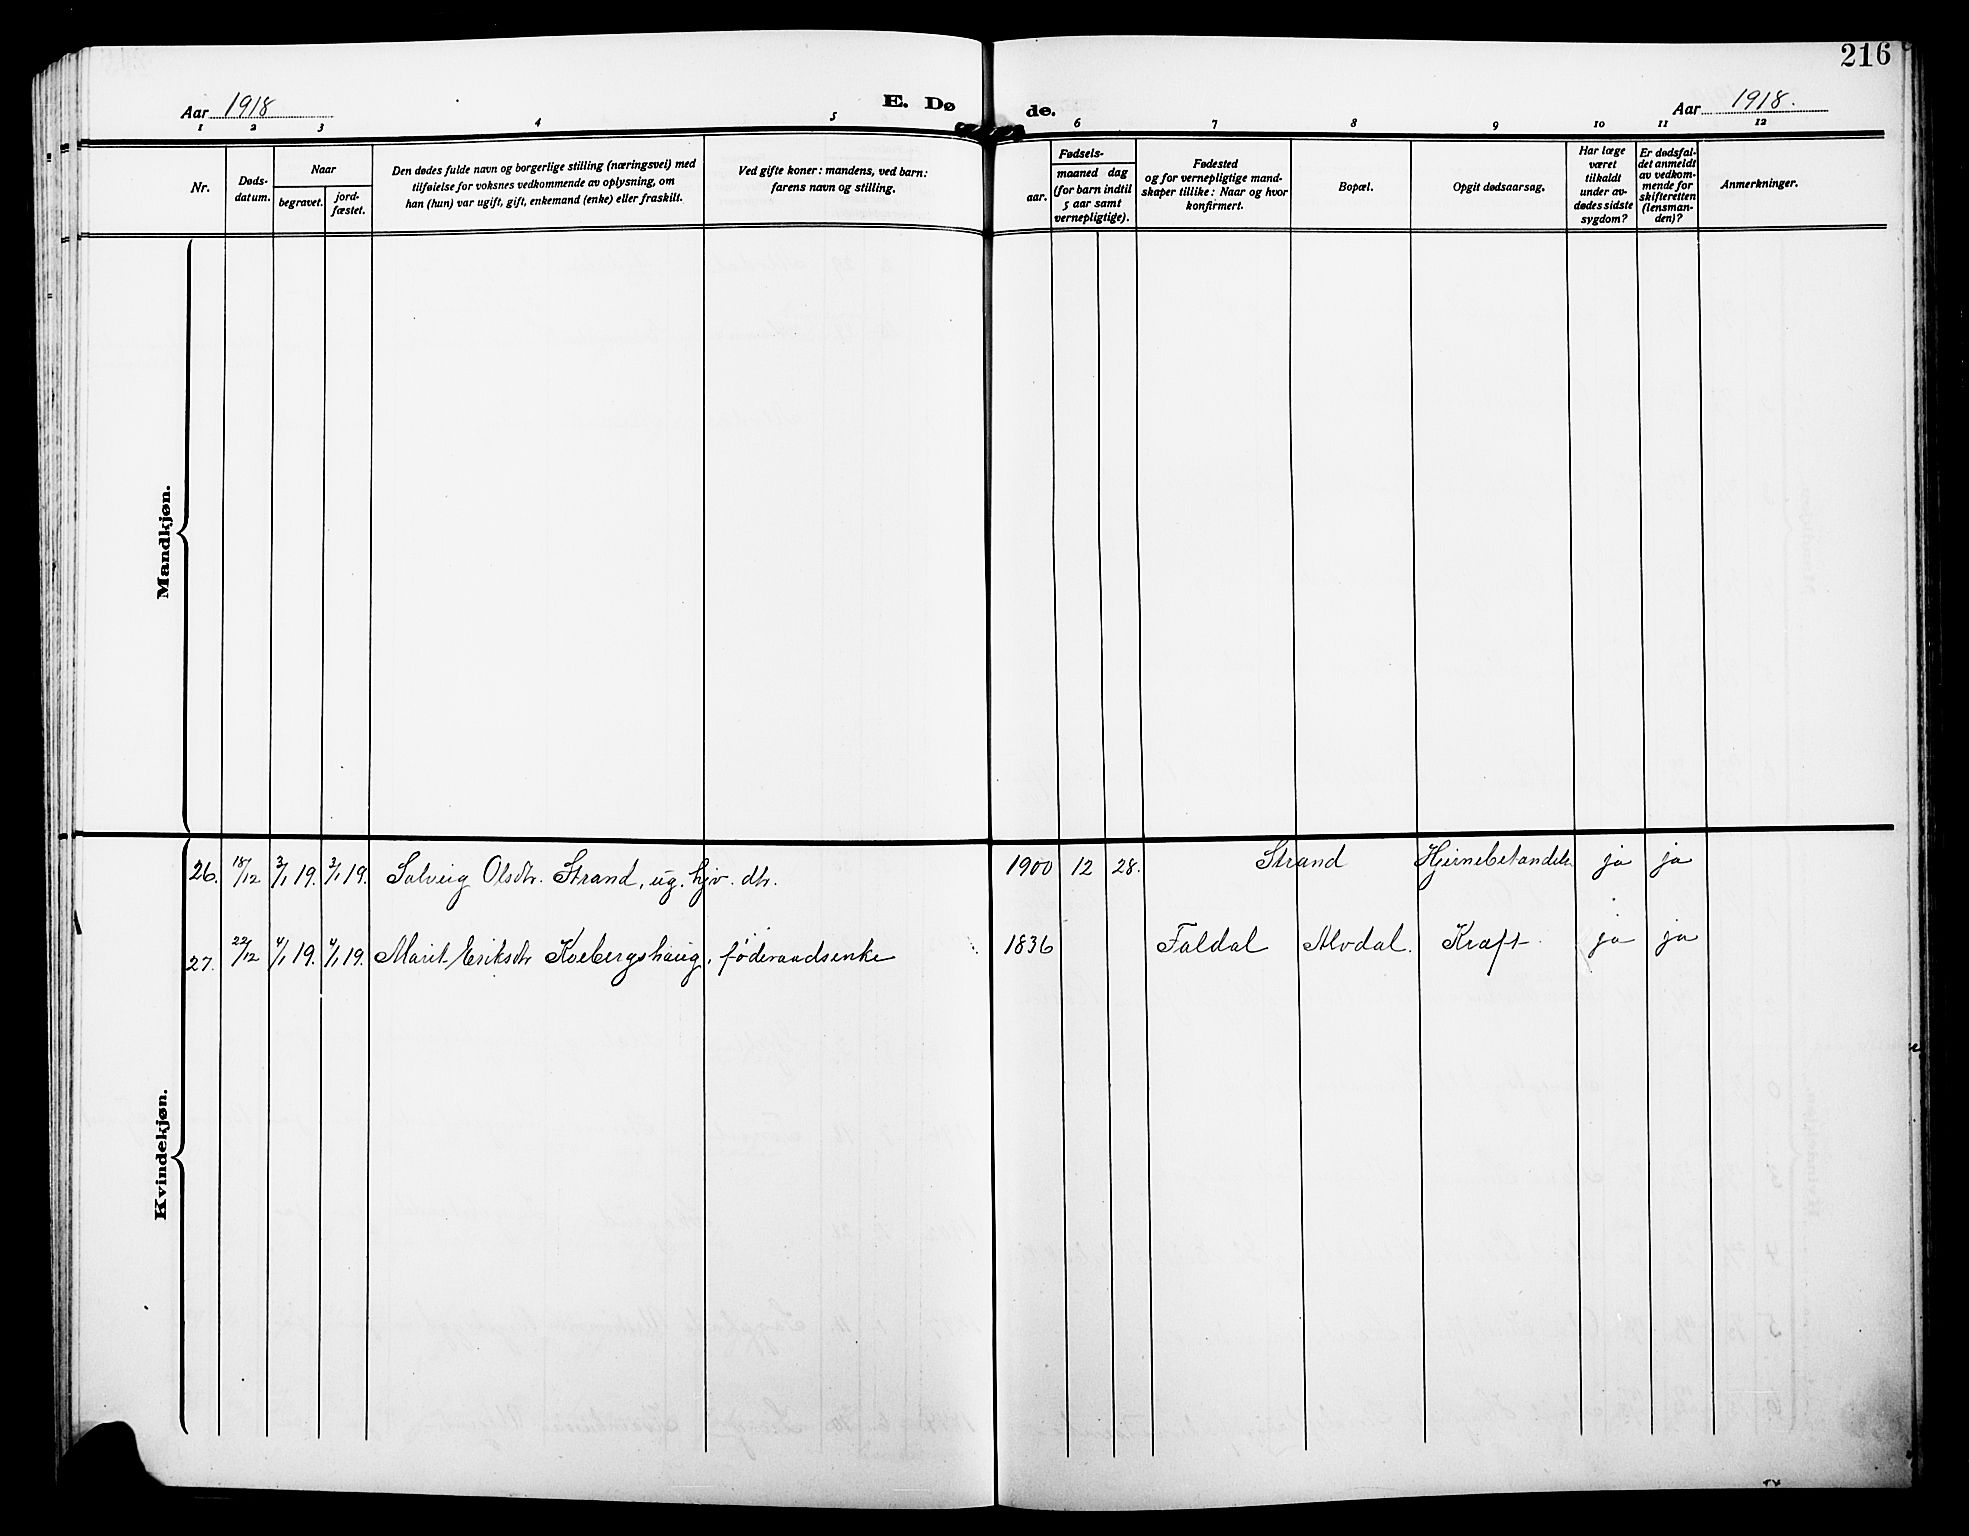 216
Aar 1918
E. Dø de.
Aar 1918.
1 2 3 4 5 6 7 8 9 10 11 12
Nr.
Døds-
datum.
Naar
begravet.
jord-
fæstet.
Den dødes fulde navn og borgerlige stilling (næringsvei) med
tilføielse for voksnes vedkommende av oplysning, om
han (hun) var ugift, gift, enkemand (enke) eller fraskilt.
Ved gifte koner: mandens, ved barn:
farens navn og stilling.
Fødsels-
aar.
maaned dag
(for barn indtil
5 aar samt
vernepligtige).
Fødested
og for vernepligtige mand-
skaper tillike: Naar og hvor
konfirmert.
Bopæl.
Opgit dødsaarsag.
Har læge
været
tilkaldt
under av-
dødes sidste
sygdom?
Er dødsfal-
det anmeldt
av vedkom-
mende for
skifteretten
(lensman-
den)?
Anmerkninger.
Mandkjøn.
Kvindekjøn.
26. 18/12 3/1 19. 3/1 19. Solveig Olsdtr. Strand, ug. hjv. dtr. 1900 12 28. Strand Hjernebetændels. ja ja
27. 22/12 4/1 19. 4/1 19. Marit Eriksdtr Kvebergshaug, føderaadsenke 1836 Faldal Alvdal. Kræft. ja ja